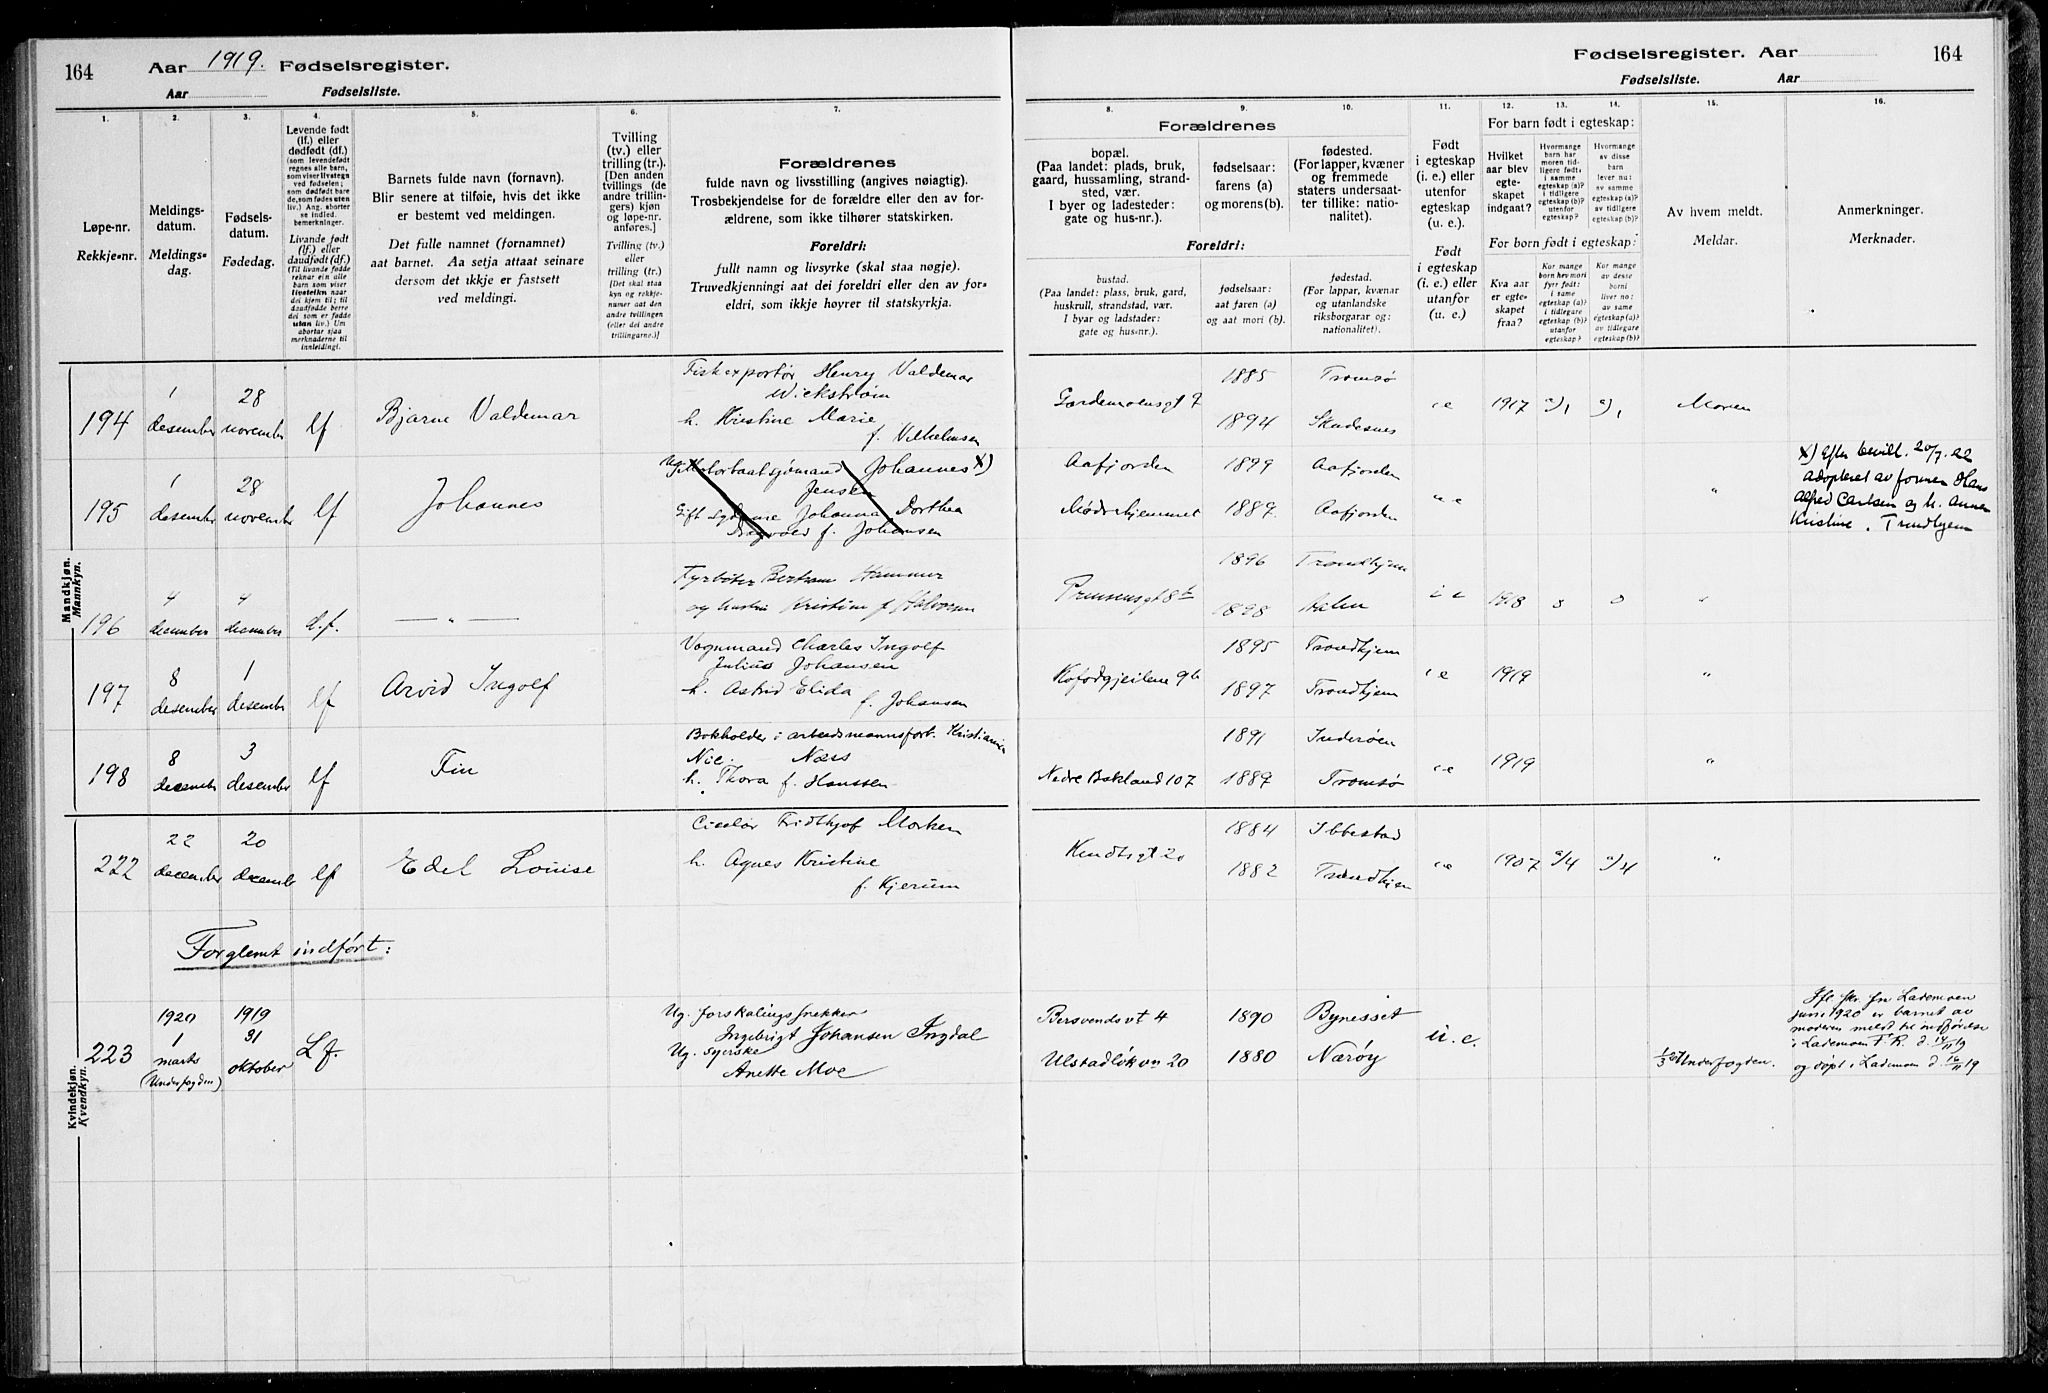 164
Aar 1919. Fødselsregister.
Aar Fødselsliste.
1.
2.
3.
4.
5.
6.
7.
Løpe-nr.
Rekkje-nr.
Meldings-
datum.
Meldings-
dag.
Fødsels-
datum.
Fødedag.
Levende født
(lf.) eller
dødfødt (df.)
(som levendefødt
regnes alle barn,
som viser livstegn
ved fødselen;
som dødfødt bare
de, som fødes uten
liv.) Ang. aborter
se indled.
bemerkninger.
Livande født
(lf.) eller
daudfødt (df.)
(Til livande fødde
reknar ein alle
barn som viser
livsteikn naar
dei kjem til; til
daudfødde berre
dei som er fødde
utan liv.) Um
abortar sjaa
merknaderne til
innleidingi.
Barnets fulde navn (fornavn).
Blir senere at tilføie, hvis det ikke
er bestemt ved meldingen.
Det fulle namnet (fornamnet)
aat barnet. Aa setja attaat seinare
dersom det ikkje er fastsett
ved meldingi.
Tvilling
(tv.) eller
trilling (tr.).
[Den anden
tvillings (de
andre trillin-
gers) kjøn
og løpe-nr.
anføres.]
Tvilling (tv.)
eller
trilling (tr.)
[Det skal staa
kyn og rekkje-
numer aat den
andre tvillingen
(eller dei andre
trillingarne.)]
Forældrenes
fulde navn og livsstilling (angives nøiagtig).
Trosbekjendelse for de forældre eller den av for-
ældrene, som ikke tilhører statskirken.
Foreldri:
fullt namn og livsyrke (skal staa nøgje).
Truvedkjenningi aat dei foreldri eller den av for-
eldri, som ikkje høyrer til statskyrkja.
Mandkjøn.
Mannkyn.
194
1
desember
28
november
lf
Bjarne Valdemar
Fiskexportør Henry Valdemar
Wickstrøm
h. Kristine Marie
f. Vilhelmsen
195
1
desember
28
november
lf
Johannes
Ug. Motorbaatsjømand Johannes x)
Jensen
Gift Johanna Dorthea
f. Johansen
196
4
december
4
december
d.f.
— " —
Fyrbøter Bertram Hammer
og hustru Kristine f. Halvorsen
197
8
desember
1
desember
lf
Arvid Ingolf
Vognmand Charles Ingolf
Julius Johansen
h. Astrid Elida
f. Johansen
198
8
desember
3
desember
lf
Fin
Bokholder i arbeidsmannsforb. Kristiania
Næss
h. Thora f. Hanssen
Kvindekjøn.
Kvendkyn.
222
22
december
20
december
lf
Edel Louise
Ciselør Fridthjof Morken
h. Agnes Kristine
f. Kjerum
Forglemt indført:
223
1920
1
marts
(Underfogden)
1919
31
oktober
Lf.
Ug. forskalingssnekker
Ingebrigt Johansen Ingdal
Ug. syerske
Anette Moe
Fødselsregister. Aar
164
Fødselsliste. Aar
8.
9.
10.
11.
12.
13.
14.
15.
16.
Forældrenes
bopæl.
(Paa landet: plads, bruk,
gaard, hussamling, strand-
sted, vær.
I byer og ladesteder:
gate og hus-nr.).
fødselsaar:
farens (a)
og morens (b).
fødested.
(For lapper, kvæner
og fremmede
staters undersaat-
ter tillike: natio-
nalitet).
Foreldri:
bustad.
(Paa landet: plass, bruk, gard,
huskrull, strandstad, vær.
I byar og ladstader:
gate og hus-nr.).
fødselsaar:
aat faren (a)
og aat mori (b).
fødestad.
(For lappar, kvænar
og utanlandske
riksborgarar og:
nationalitet).
Født
i egteskap
(i. e.) eller
utenfor
egteskap
(u. e.).
Født
i egteskap
(i. e.) eller
utanfor
(u. e.)
For barn født i egteskap:
Hvilket
aar blev
egte-
skapet
indgaat?
Hvormange
barn har
moren tid-
ligere født:
i samme
egteskap (a)?
i tidligere
egteskap (b)?
utenfor
egteskap?
Hvormange
av disse
barn
lever nu:
av samme
egteskap (a)?
av tidligere
egteskap (b)?
For born født i egteskap:
Kva aar
er egte-
skapet
fraa?
Kor mange
born hev mori
fyrr født:
i same
egteskap (a)?
i tidlegare
egteskap (b)?
utanfor
egteskap?
Kor mange
av desse
borni
liver no:
av same
egteskap (a)?
av tidlegare
egteskap (b)?
Av hvem meldt.
Meldar.
Anmerkninger.
Merknader.
Gardemoensgt 7
1885
1894
Tromsø
Skudesnes
i e
1917
a/1
a/1
Moren
Aafjorden
Mødrehjemmet
1899
1889
Aafjorden
Aafjorden
u e
"
x) Efter bevill. 20/7. 22
adopteret av formen Hans
Alfred Carlsen og h. Anna
Kristine. Trondhjem
Prinsensgt 8b
1896
1898
Trondhjem
Aalen
i e
1918
0
0
"
Kofodgjeilene 9b
1895
1897
Trondhjem
Trondhjem
i e
1919
"
Nedre Bakland 107
1891
1889
Inderøen
Tromsø
i e
1919
"
Kendtsgt 20
1884
1882
Ibbestad
Trondhjem
i e
1907
a/4
a/4
"
Bersvendsvt 4
Ulstadløkvn 20
1890
1880
Bynesset
Nærøy
u. e.
1/3 20 Underfogden.
Ifl. skr. fra Lademoen
juni 1920 er barnet av
moderen meldt til indførelse
i Lademoen F. R. d. 14/11 19
og døpt i Lademoen d. 16/11 19